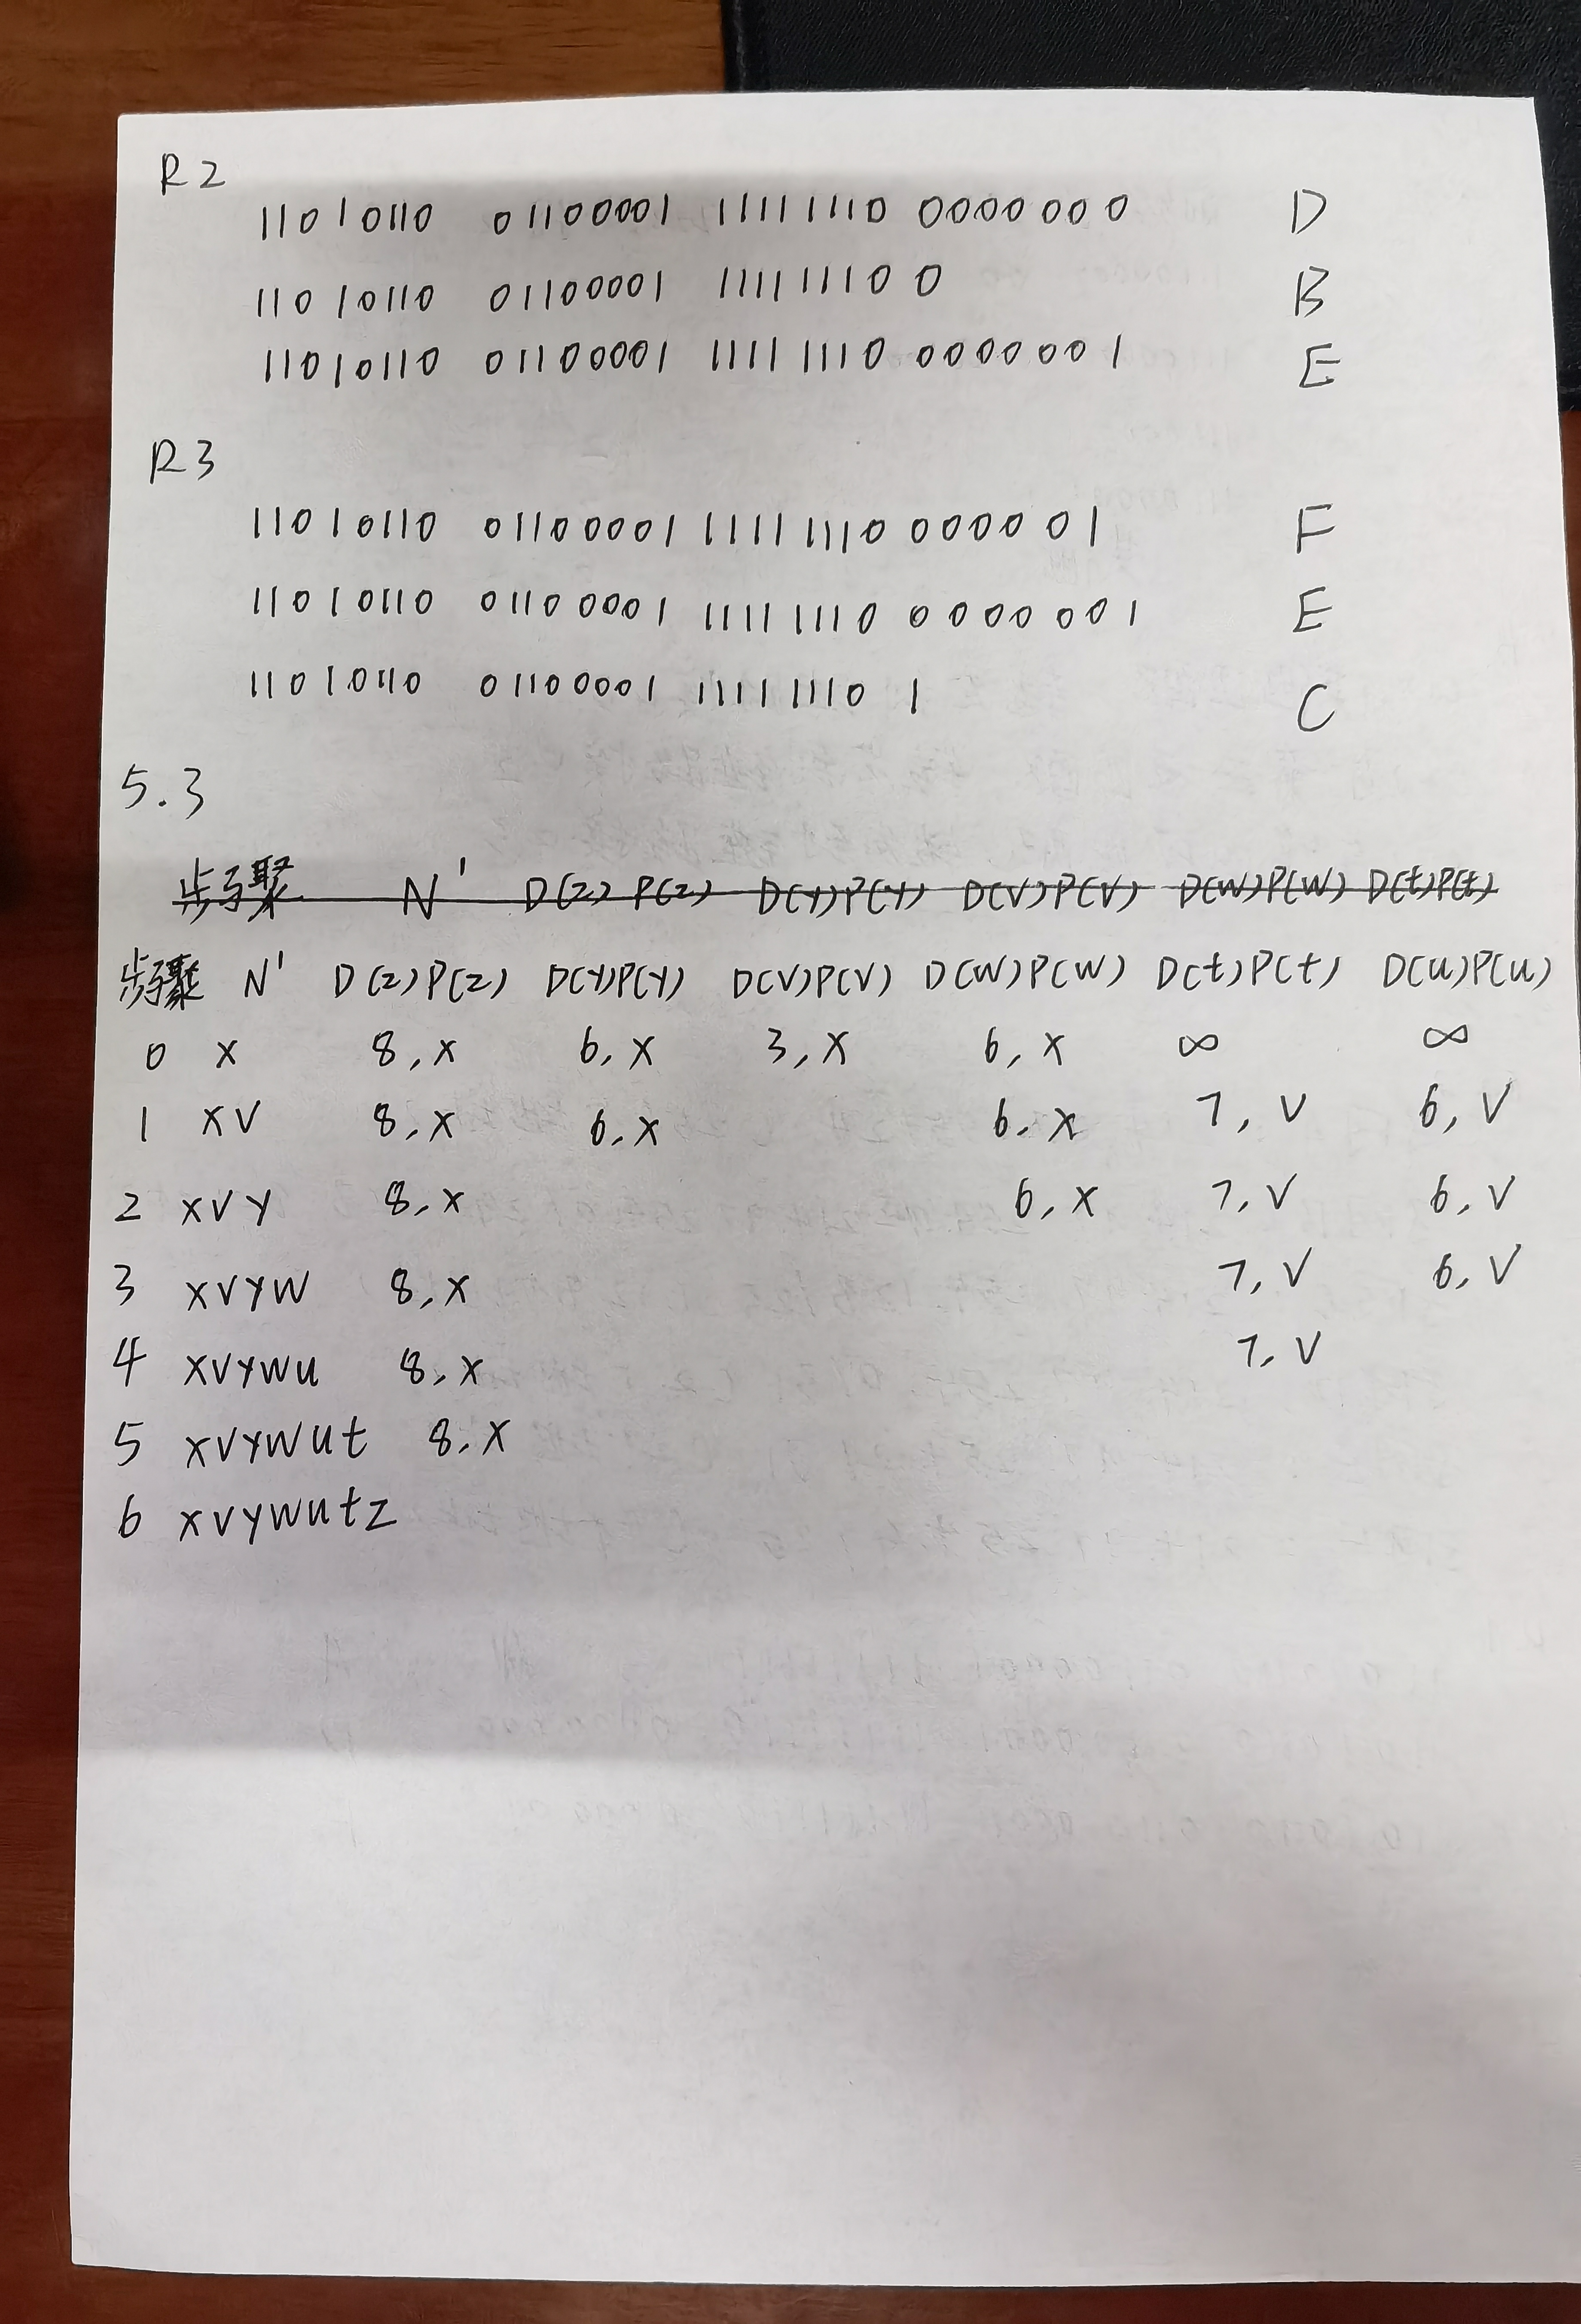 R2
11010110 01100001 11111110 0000000 D
11010110 01100001 11111110 0 B
11010110 01100001 11111110 0000001 E
R3
11010110 01100001 11111110 000001 F
11010110 01100001 11111110 0000001 E
11010110 01100001 11111110 1 C
5.3
步骤 N' D(z)P(z) D(y)P(y) D(v)P(v) D(w)P(w) D(t)P(t)
步骤 N' D(z)P(z) D(y)P(y) D(v)P(v) D(w)P(w) D(t)P(t) D(u)P(u)
0 x 8,x 6,x 3,x 6,x ∞ ∞
1 xv 8,x 6,x 6,x 7,v 6,v
2 xvy 8,x 6,x 7,v 6,v
3 xvyw 8,x 7,v 6,v
4 xvywu 8,x 7,v
5 xvywut 8,x
6 xvywutz